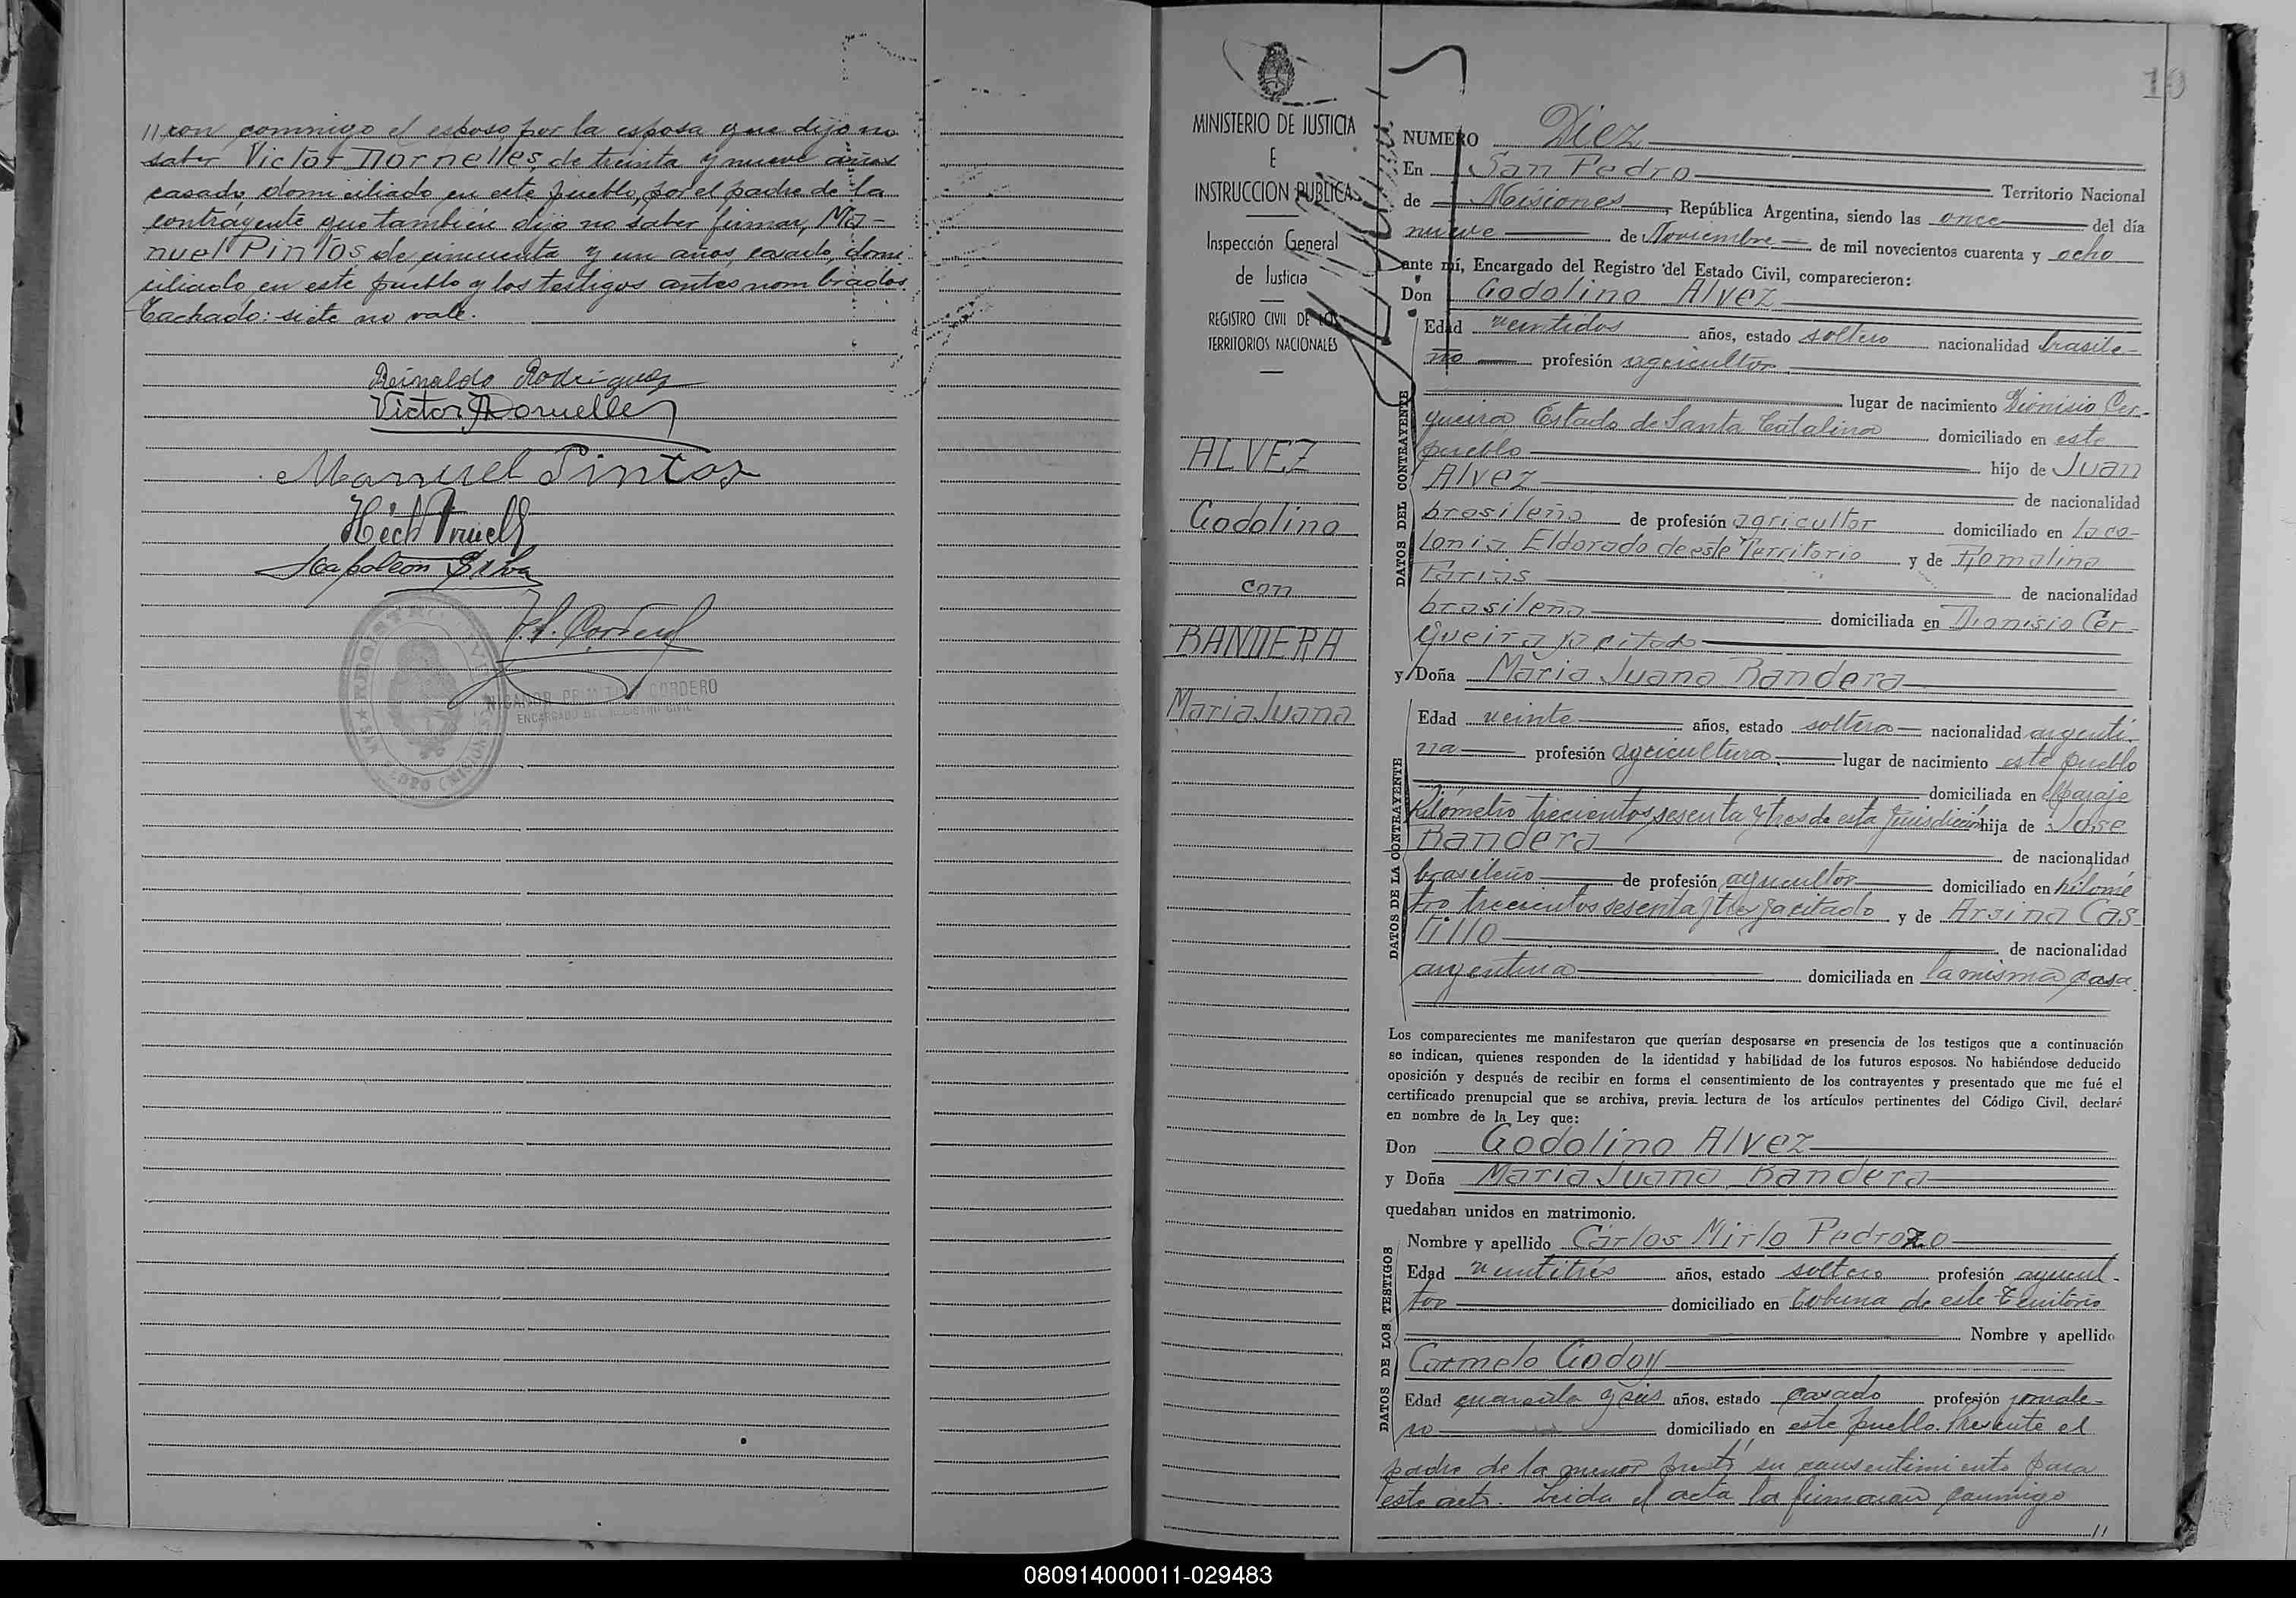 //ron conmigo el esposo por la esposa que dijo no
saber Victor Dornelles, de treinta y nueve años
casado, domiciliado en este pueblo, por el padre de la
contrayente que tambien dijo no saber firmar, Ma-
nuel Pintos de cincuenta y un años, casado, domi
ciliado en este pueblo y los testigos antes nombrados.
Tachado: siete no vale.
Reinaldo Rodriguez
Victor Dornelles
Manuel Pintos
Napoleon Silva
NICANOR PRIMITIVO CORDERO
ENCARGADO DEL REGISTRO CIVIL
10
MINISTERIO DE JUSTICIA
E
INSTRUCCION PUBLICA
Inspección General
de Justicia
REGISTRO CIVIL DE LOS
TERRITORIOS NACIONALES
ALVEZ
Godolino
con
BANDERA
Maria Juana
NUMERO Diez
En San Pedro Territorio Nacional
de Misiones, República Argentina, siendo las once del día
nueve de Noviembre de mil novecientos cuarenta y ocho
ante mí, Encargado del Registro del Estado Civil, comparecieron:
Don Godolino Alvez
DATOS DEL CONTRAYENTE
Edad veintidos años, estado soltero nacionalidad brasile-
ño profesión agricultor
lugar de nacimiento Dionisio Cer-
queira Estado de Santa Catalina domiciliado en este
pueblo hijo de Juan
Alvez de nacionalidad
brasileño de profesión agricultor domiciliado en la co-
lonia Eldorado de este Territorio y de Romalina
Farias de nacionalidad
brasileña domiciliada en Dionisio Cer-
queira ya citado
y Doña Maria Juana Bandera
DATOS DE LA CONTRAYENTE
Edad veinte años, estado soltera nacionalidad argenti-
na profesión agricultura lugar de nacimiento este pueblo
domiciliada en el paraje
Kilómetro trecientos sesenta y tres de esta jurisdicción hija de José
Bandera de nacionalidad
brasileño de profesión agricultor domiciliado en kilóme
tro trecientos sesenta y tres ya citado y de Arsina Cas-
tillo de nacionalidad
argentina domiciliada en la misma casa.
Los comparecientes me manifestaron que querían desposarse en presencia de los testigos que a continuación
se indican, quienes responden de la identidad y habilidad de los futuros esposos. No habiéndose deducido
oposición y después de recibir en forma el consentimiento de los contrayentes y presentado que me fué el
certificado prenupcial que se archiva, previa lectura de los artículos pertinentes del Código Civil, declaré
en nombre de la Ley que:
Don Godolino Alvez
y Doña Maria Juana Bandera
quedaban unidos en matrimonio.
DATOS DE LOS TESTIGOS
Nombre y apellido Carlos Mirlo Pedrozo
Edad veintitrés años, estado soltero profesión agricul-
tor domiciliado en Tobuna de este Territorio
Nombre y apellido
Carmelo Godoy
Edad cuarenta y seis años, estado casado profesión jornale-
ro domiciliado en este pueblo. Presente el
padre de la menor prestó su consentimiento para
este acto. Leida el acta la firmaron conmigo
//
080914000011-029483